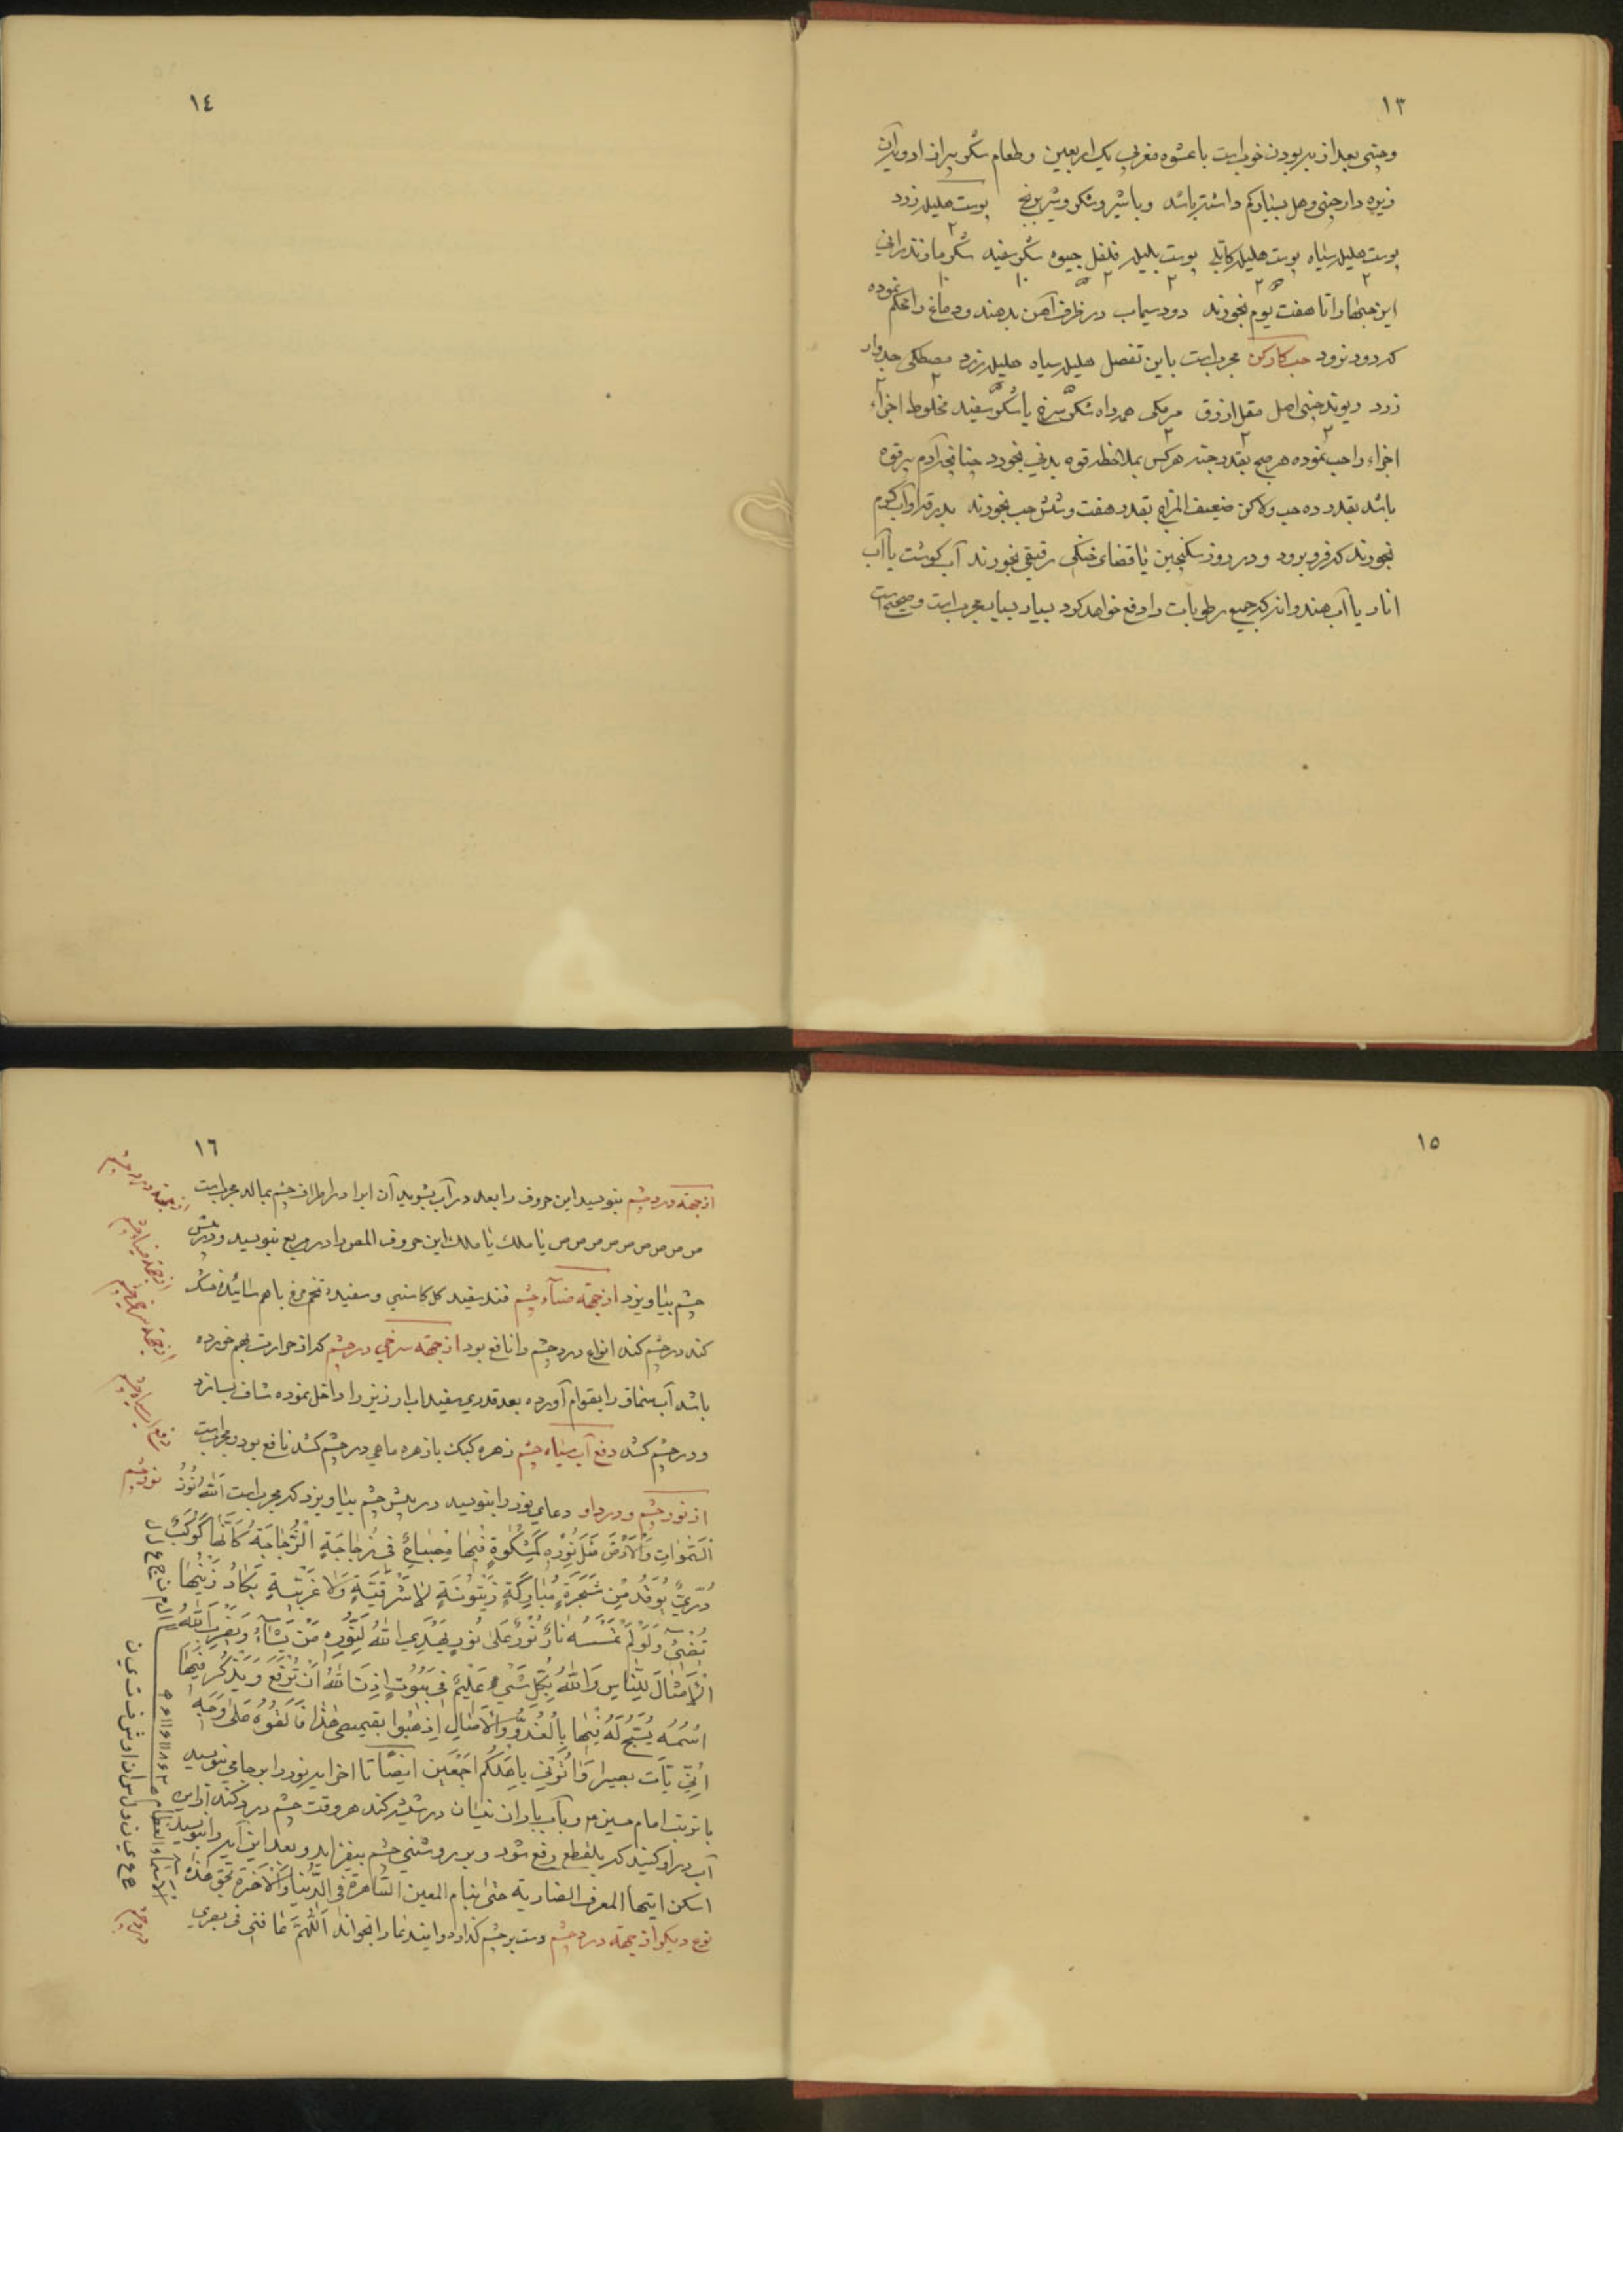 ١٣
وچینی بعد از بدبودن خوبست با عشوه مغربی یک اربعین وطعام شکر
زیره دارچینی وهل بسیار کم داشته باشد وبا شیر وشکر وشیربرنج پوست هلیله زرد
پوست هلیله سیاه پوست هلیله کابلی پوست بلیله فلفل جیوه شکر سفید شکر مازندرانی
این حبها را تا هفت یوم بخورند دود سیماب در ظرف آهن بدهند ودماغ را محکم نموده
که دود نرود حب کارکن مجربست باین تفصل هلیله سیاه هلیله زرد مصطکی جدوار
زرد ریوند چینی اصل مقل ازرق مرمکی همراه شکر سرخ یا شکر سفید مخلوط اجزاء
اجزاء را حب نموده هر صبح بقدر چند هرکس بملاحظه قوه بدنی بخورد چنانچه آدم پرقوه
باشد بقدر ده حب ولاکن ضعیف المزاج بقدر هفت وشش حب بخورند بدرقه او آب گرم
بخورند که فرو برود ودر روز سکنجبین یا قضای خنکی رقیقی بخورند آب گوشت یا آب
انار یا آب هندوانه که جمیع رطوبات را دفع خواهد کرد بسیار بسیار مجربست وصحیح است
١٤
١٥
١٦
از جهة درد چشم بنویسد این حروف را بعد در آب بشوید آن ابرا در اطراف چشم بمالد مجربست
ص ص ص ص ص ص ص ص ص یا ملک یا ملک این حروف المص را در مربع بنویسد ودر پیش
چشم بیاویزد از جهة ضیآء چشم قند سفید کل کاسنی وسفیده تخم مرغ باهم سائیده خشک
کند در چشم کند انواع درد چشم را نافع بود از جهة سرخی در چشم که از حرارت بهم خورده
باشد آب سماق را بقوام آورده بعد قدری سفیداب ارزیز را داخل نموده شاف بسازد
ودر چشم کشد دفع آب سیاه چشم زهره کبک با زهره ماهی در چشم کشد نافع بود ومجربست
از نور چشم ودرد او دعای نور را بنویسد در پیش چشم بیاویزد که مجربست اَللهُ نُوْرُ
السَّمٰوٰاتِ وَالْاَرْضِ مَثَلُ نُوْرِهِ کَمِشْکٰوةٍ فٖیهٰا مِصْبٰاحٌ فٖی زُجٰاجَةٍ الْزُّجٰاجَةُ کَاَنَّهٰا کَوْکَبٌ
دُرِّيٌّ یُوْقَدُ مِنْ شَجَرَةٍ مُبٰارَکَةٍ زَیْتُوْنَةٍ لٰا شَرْقِیَّةٍ وَلٰا غَرْبِیَّةٍ یَکٰادُ زَیْتُهٰا
یُضٖیئُ وَلَوْ لَمْ تَمْسَسْهُ نٰارٌ نُوْرٌ عَلٰی نُوْرٍ یَهْدِي اللهُ لِنُوْرِهِ مَنْ یَشٰآءُ وَیَضْرِبُ اللهُ
الْاَمْثٰالَ لِلنّٰاسِ وَاللهُ بِکُلِّ شَيْءٍ عَلٖیْمٌ فٖی بُیُوْتٍ اَذِنَ اللهُ اَنْ تُرْفَعَ وَیُذْکَرَ فٖیهٰا
اسْمُهُ یُسَبِّحُ لَهُ فٖیهٰا بِالْغُدُوِّ وَالْاٰصٰالِ اِذْهَبُوا بقمیصی هٰذٰا فَاَلْقُوْهُ عَلٰی وَجْهِ
اَبٖی یَأتِ بصیرا وَأتُوْنٖی بِاَهْلِکُمْ اَجْمَعٖین ایضًا تا اخر ایه نور را بر جامی بنویسد
با تربت امام حسین ع وبآب باران نیسان در شیشه کند هر وقت چشم درد کند از این
آب در او کنید که بلقطع رفع شود وبر روشنی چشم بیفزاید وبعد این آیه را بنویسد
اسکن ایتها المعرف الضاربة حتی ینام المعین الشاهرة فی الدُّنیا وَالْاٰخرة بحق هٰذه
نوع دیگر از جهة درد چشم دست بر چشم گذارد واین دعا را بخواند اَللّٰهُمَّ عٰافنی فٖی بصري
از جهة درد چشم
از جهة ضیاء چشم
از جهة سرخی چشم
دفع آب سیاه چشم
نور چشم
الاسماء العظام
درد چشم